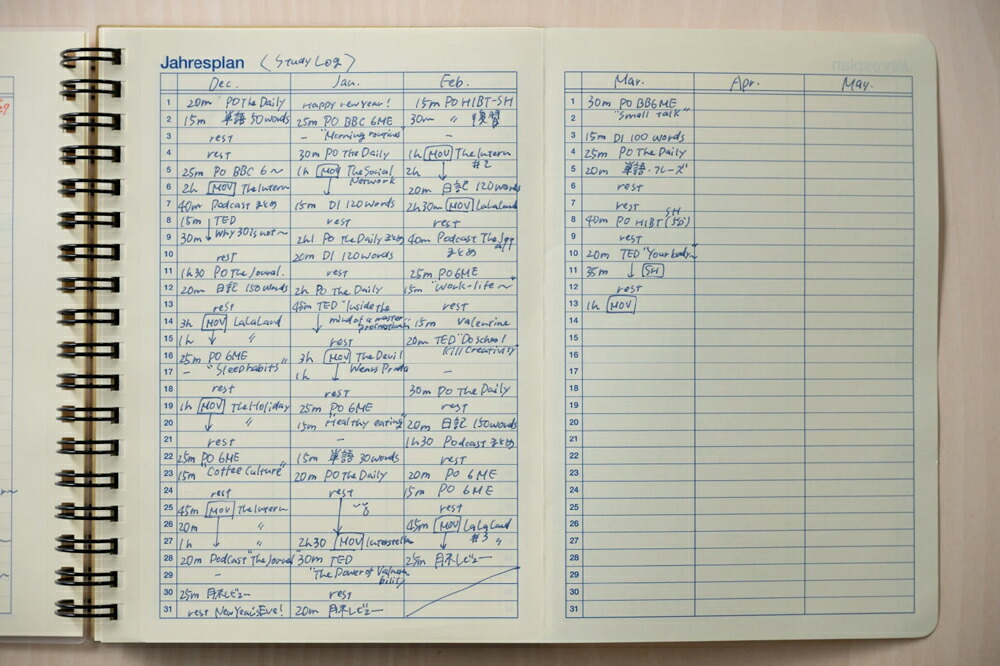 Jahresplan 〈Study Log〉
Dec. Jan. Feb.
1 20m PO The Daily Happy new year! 15m PO HIBT-SH
2 15m 単語 50 words 25m PO BBC 6ME 30m 〃 復習
3 rest – "Morning routines –
4 rest 30m PO The Daily 1h MOV The Intern #2
5 25m PO BBC 6〜 1h MOV The Social Network 2h
6 2h MOV The Intern 20m 日記 120 words
7 40m Podcast まとめ 15m DI 120 words 2h30m MOV LaLaLand
8 15m TED rest rest
9 30m Why 30 is not〜 2h1 PO The Daily まとめ 40m Podcast The
10 rest 20m DI 120 words まとめ
11 1h30 PO The Journal. rest 25m PO 6ME
12 20m 日記 150 words 2h PO The Daily 15m "Work-life〜
13 rest 45m TED "Inside the rest
14 3h MOV LaLaLand mind of a master 15m Valentine
15 1h 〃 rest 20m TED "Do school
16 25m PO 6ME 3h MOV The Devil kill Creativity
17 – "Sleep habits" 1h Wears Prada –
18 rest rest 30m PO The Daily
19 1h MOV The Holiday 25m PO 6ME rest
20 〃 15m "Healthy eating" 20m 日記 150 words
21 rest – 1h30 Podcast まとめ
22 25m PO 6ME 15m 単語 30 words rest
23 15m "Coffee Culture" 20m PO The Daily 20m PO 6ME
24 rest rest 15m PO 6ME
25 45m MOV The Intern rest
26 20m 〃 45m MOV LaLaLand
27 1h 〃 2h30 MOV Interstella #3 〃
28 20m Podcast "The Journal 30m TED 25m 月末レビュー
29 – "The Power of Vulnerability
30 25m 月末レビュー rest
31 rest New Year's Eve! 20m 月末レビュー
Mar. Apr. May.
1 30m PO BBC6ME
2 "Small talk"
3 15m DI 100 words
4 25m PO The Daily
5 20m 単語・フレーズ
6 rest
7 rest
8 40m PO HIBT SH
9 rest
10 20m TED "Your body〜
11 35m SH
12 rest
13 1h MOV
14
15
16
17
18
19
20
21
22
23
24
25
26
27
28
29
30
31